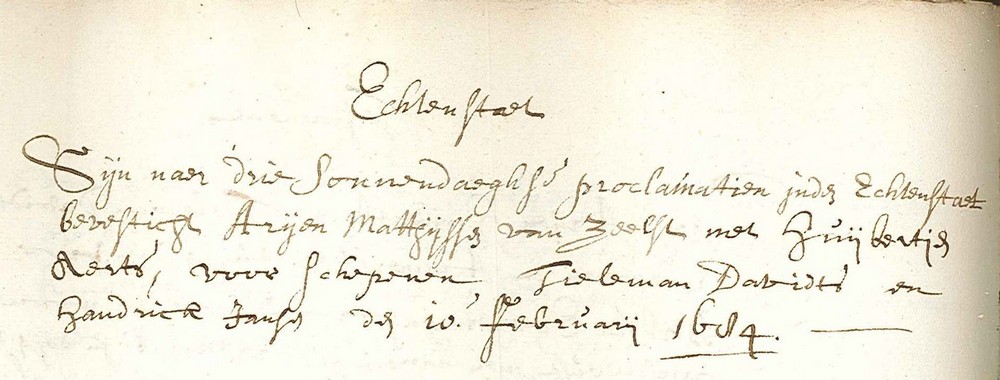 Echtenstaet
Sijn naer drie Sonnendaeghse proclamatien inden Echtenstaet
bevesticht Arijen Matthijssen van Zeelst met Huijbertien
Aerts, voor Schepenen Tieleman Davidts en
Handrick Jansen den 10 Februarij 1684.